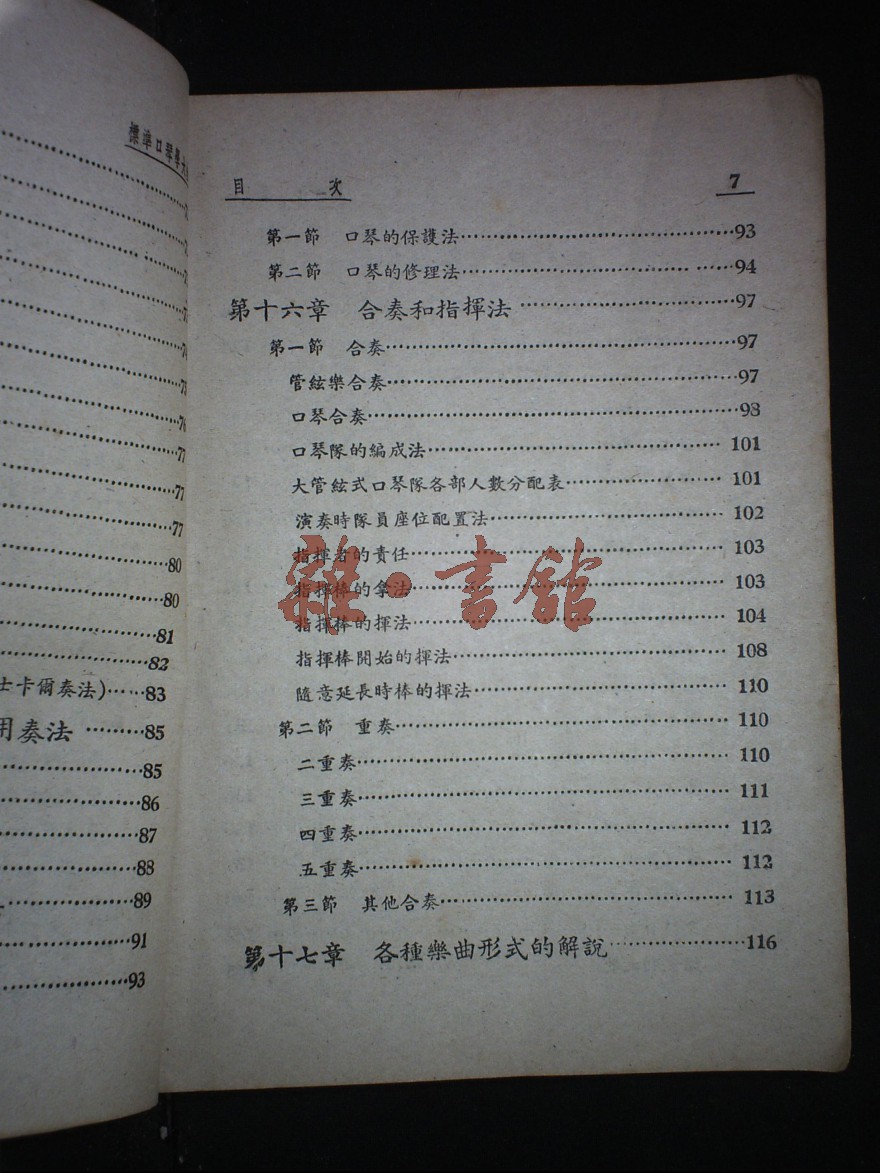 標準口琴學
80
80
81
82
士卡爾奏法)……83
用奏法………85
85
86
87
88
89
91
93
目　次　7
第一節　口琴的保護法……93
第二節　口琴的修理法……94
第十六章　合奏和指揮法……97
第一節　合奏……97
管絃樂合奏……97
口琴合奏……98
口琴隊的編成法……101
大管絃式口琴隊各部人數分配表……101
演奏時隊員座位配置法……102
指揮者的責任……103
指揮棒的拿法……103
指揮棒的揮法……104
指揮棒開始的揮法……108
隨意延長時棒的揮法……110
第二節　重奏……110
二重奏……110
三重奏……111
四重奏……112
五重奏……112
第三節　其他合奏……113
第十七章　各種樂曲形式的解說……116
雜·書館